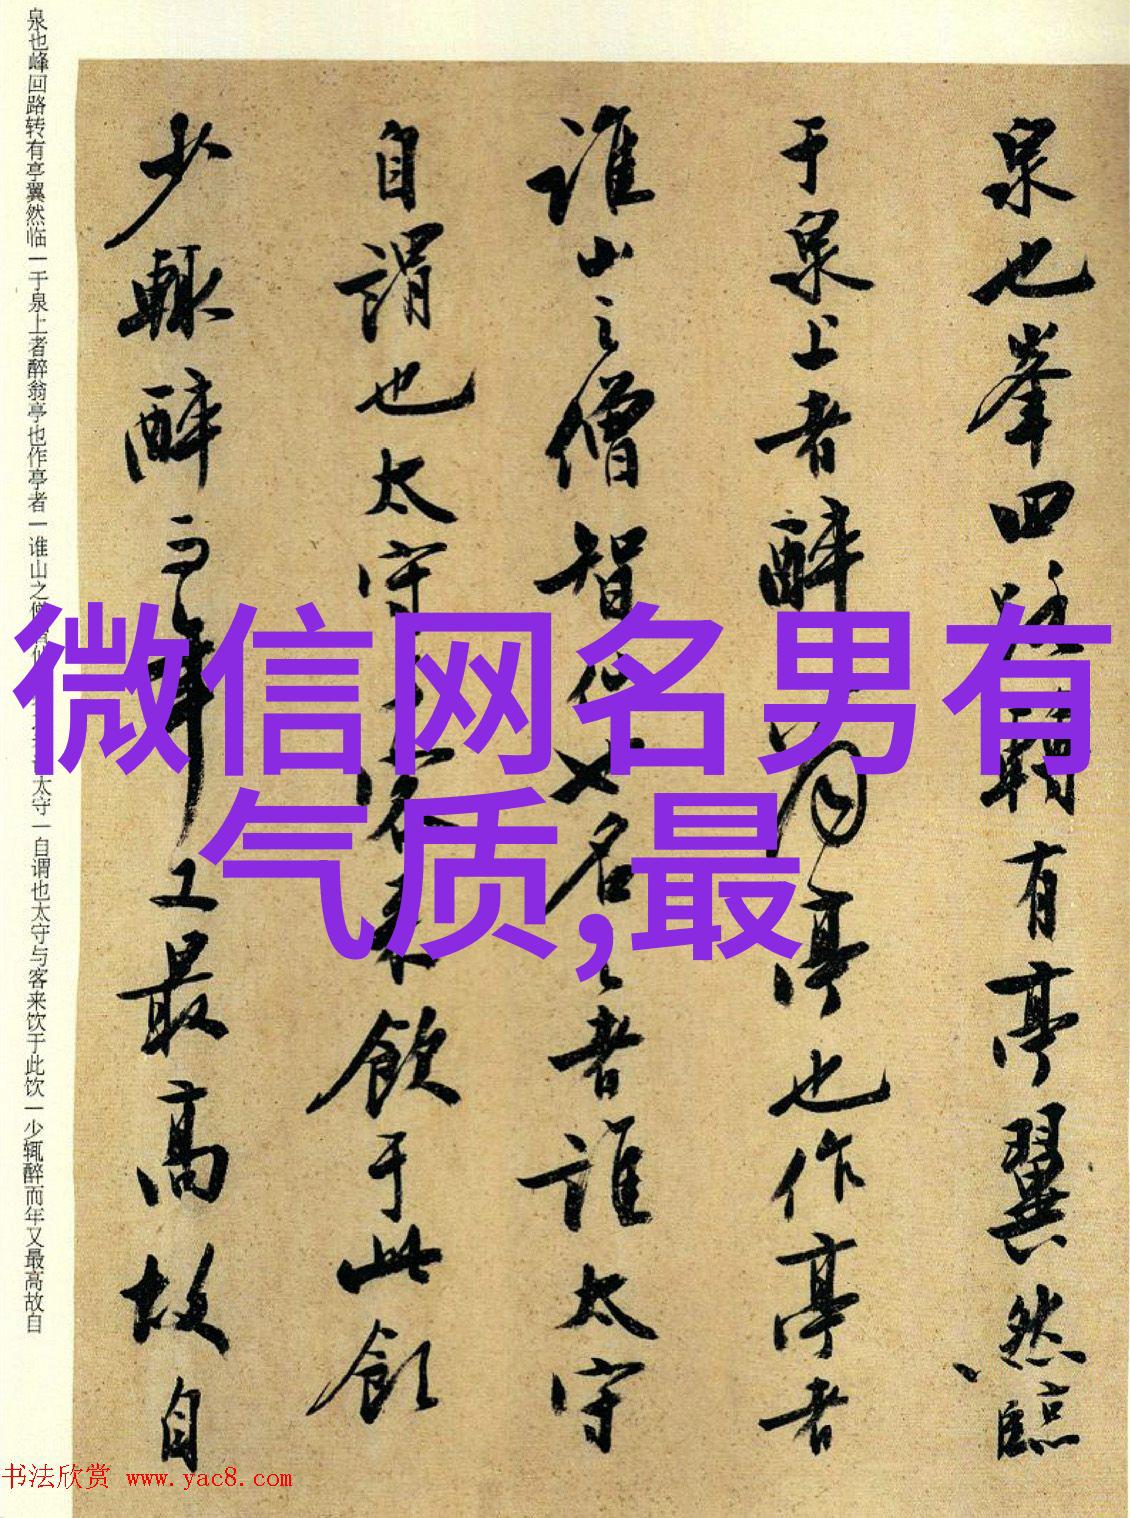 泉也峯回路轉有亭翼然臨
于泉上者醉翁亭也作亭者
誰山之僧智僊也名之者誰太守
自謂也太守与客来飲于此飲
少輒醉而年又最高故自
微信网名男有
气质,最
泉也峰回路转有亭翼然临一于泉上者醉翁亭也作亭者一谁山之僧智仙 太守一自谓也太守与客来饮于此饮一少辄醉而年又最高故自
书法欣赏 www.yac8.com